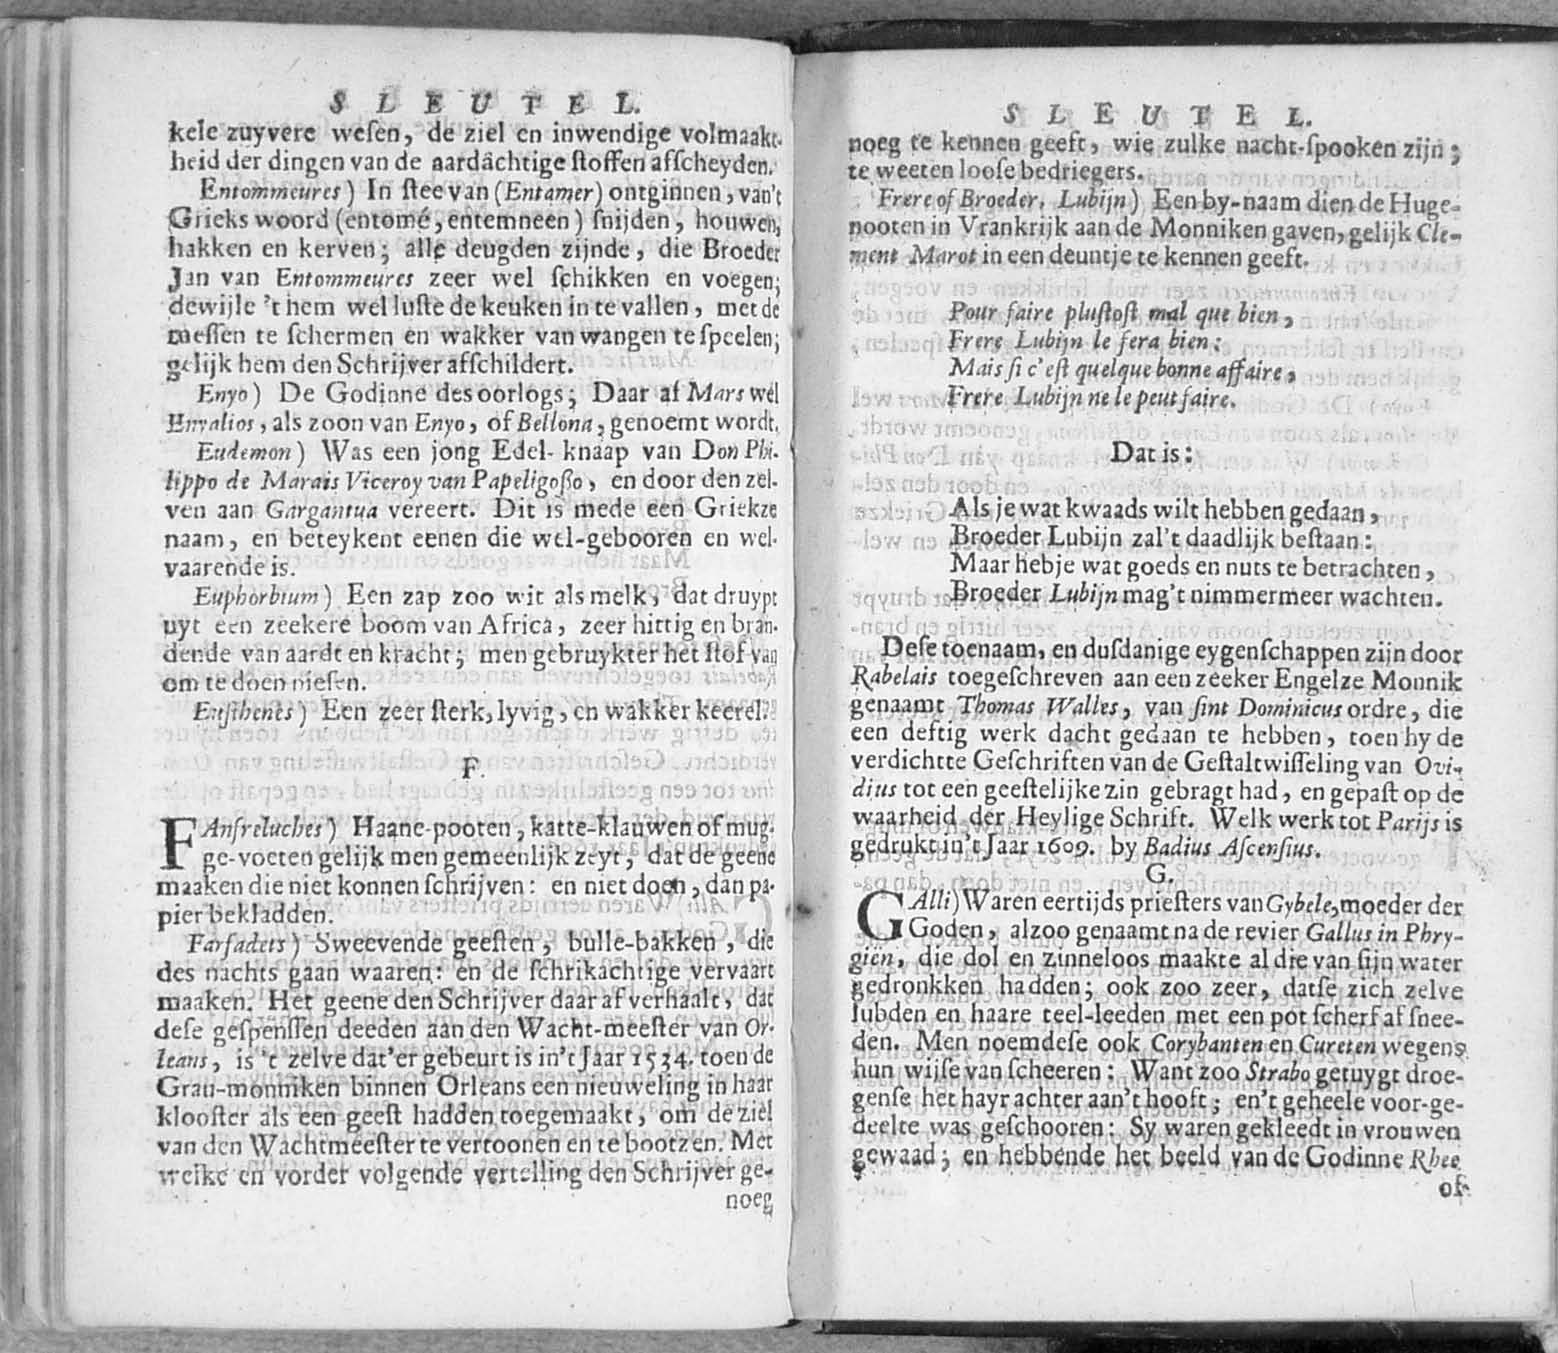 SLEUTEL.
kele zuyvere weſen, de ziel en inwendige volmaakt-
heid der dingen van de aardáchtige ſtoffen afſcheyden.
Entommeures) In ſtee van (Entamer) ontginnen, van't
Grieks woord (entomé, entemneen) ſnijden, houwen,
hakken en kerven; alle deugden zijnde, die Broeder
Jan van Entommeures zeer wel ſchikken en voegen;
dewijle 't hem wel luſte de keuken in te vallen, met de
meſſen te ſchermen en wakker van wangen te ſpeelen;
gelijk hem den Schrijver afſchildert.
Enyo) De Godinne des oorlogs; Daar af Mars wel
Enyalios, als zoon van Enyo, of Bellona, genoemt wordt.
Eudemon) Was een jong Edel-knaap van Don Phi-
lippo de Marais Viceroy van Papeligoßo, en door den zel-
ven aan Gargantua vereert. Dit is mede een Griekze
naam, en beteykent eenen die wel-gebooren en wel-
vaarende is.
Euphorbium) Een zap zoo wit als melk, dat druypt
uyt een zeekere boom van Africa, zeer hittig en bran-
dende van aardt en kracht; men gebruykter het ſtof van
om te doen nieſen.
Euſthenes) Een zeer ſterk, lyvig, en wakker keerel.
F.
FAnfreluches) Haane-pooten, katte-klauwen of mug-
ge-voeten gelijk men gemeenlijk zeyt, dat de geene
maaken die niet konnen ſchrijven: en niet doen, dan pa-
pier bekladden.
Farfadets) Sweevende geeſten, bulle-bakken, die
des nachts gaan waaren: en de ſchrikachtige vervaart
maaken. Het geene den Schrijver daar af verhaalt, dat
deſe geſpenſſen deeden aan den Wacht-meeſter van Or-
leans, is 't zelve dat'er gebeurt is in't Jaar 1534. toen de
Grau-monniken binnen Orleans een nieuweling in haar
klooſter als een geeſt hadden toegemaakt, om de ziel
van den Wachtmeeſter te vertoonen en te bootzen. Met
welke en vorder volgende vertelling den Schrijver ge-
noeg
SLEUTEL.
noeg te kennen geeft, wie zulke nacht-ſpooken zijn;
te weeten looſe bedriegers.
Frere of Broeder, Lubijn) Een by-naam dien de Huge-
nooten in Vrankrijk aan de Monniken gaven, gelijk Cle-
ment Marot in een deuntje te kennen geeft.
Pour faire pluſtoſt mal que bien,
Frere Lubijn le fera bien:
Mais ſi c'eſt quelque bonne affaire,
Frere Lubijn ne le peut faire.
Dat is:
Als je wat kwaads wilt hebben gedaan,
Broeder Lubijn zal't daadlijk beſtaan:
Maar hebje wat goeds en nuts te betrachten,
Broeder Lubijn mag't nimmermeer wachten.
Deſe toenaam, en duſdanige eygenſchappen zijn door
Rabelais toegeſchreven aan een zeeker Engelze Monnik
genaamt Thomas Walles, van ſint Dominicus ordre, die
een deftig werk dacht gedaan te hebben, toen hy de
verdichtte Geſchriften van de Geſtaltwiſſeling van Ovi-
dius tot een geeſtelijke zin gebragt had, en gepaſt op de
waarheid der Heylige Schrift. Welk werk tot Parijs is
gedrukt in't Jaar 1609. by Badius Aſcenſius.
G.
GAlli) Waren eertijds prieſters van Gybele, moeder der
Goden, alzoo genaamt na de revier Gallus in Phry-
gien, die dol en zinneloos maakte al dre van ſijn water
gedronkken hadden; ook zoo zeer, datſe zich zelve
lubden en haare teel-leeden met een pot ſcherf af ſnee-
den. Men noemdeſe ook Corybanten en Cureten wegens
hun wijſe van ſcheeren: Want zoo Strabo getuygt droe-
genſe het hayr achter aan't hooft; en't geheele voor-ge-
deelte was geſchooren: Sy waren gekleedt in vrouwen
gewaad; en hebbende het beeld van de Godinne Rhee
of